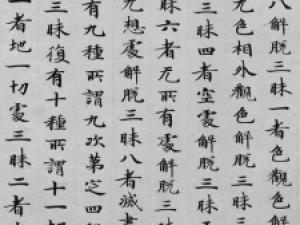 八解脱三昧一者色觀色解
无色相外觀色解脱三
三昧四者空處解脱三昧
昧六者无所有處解脱三
无想處解脱三昧八者滅
有九種所謂九次第定四
三昧復有十種所謂十一
者地一切處三昧二者